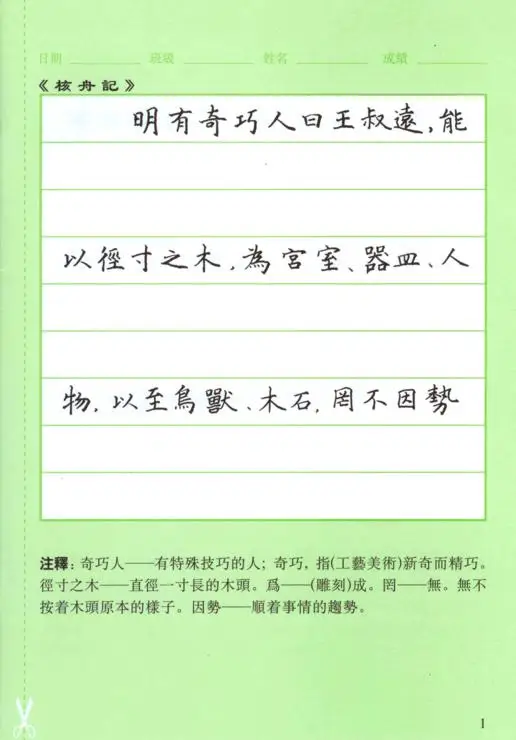 日期 班級 姓名 成績
《核舟記》
明有奇巧人曰王叔遠,能
以徑寸之木,為宮室、器皿、人
物,以至鳥獸、木石,罔不因勢
注釋:奇巧人——有特殊技巧的人;奇巧,指(工藝美術)新奇而精巧。
徑寸之木——直徑一寸長的木頭。爲——(雕刻)成。罔——無。無不
按着木頭原本的樣子。因勢——順着事情的趨勢。
1